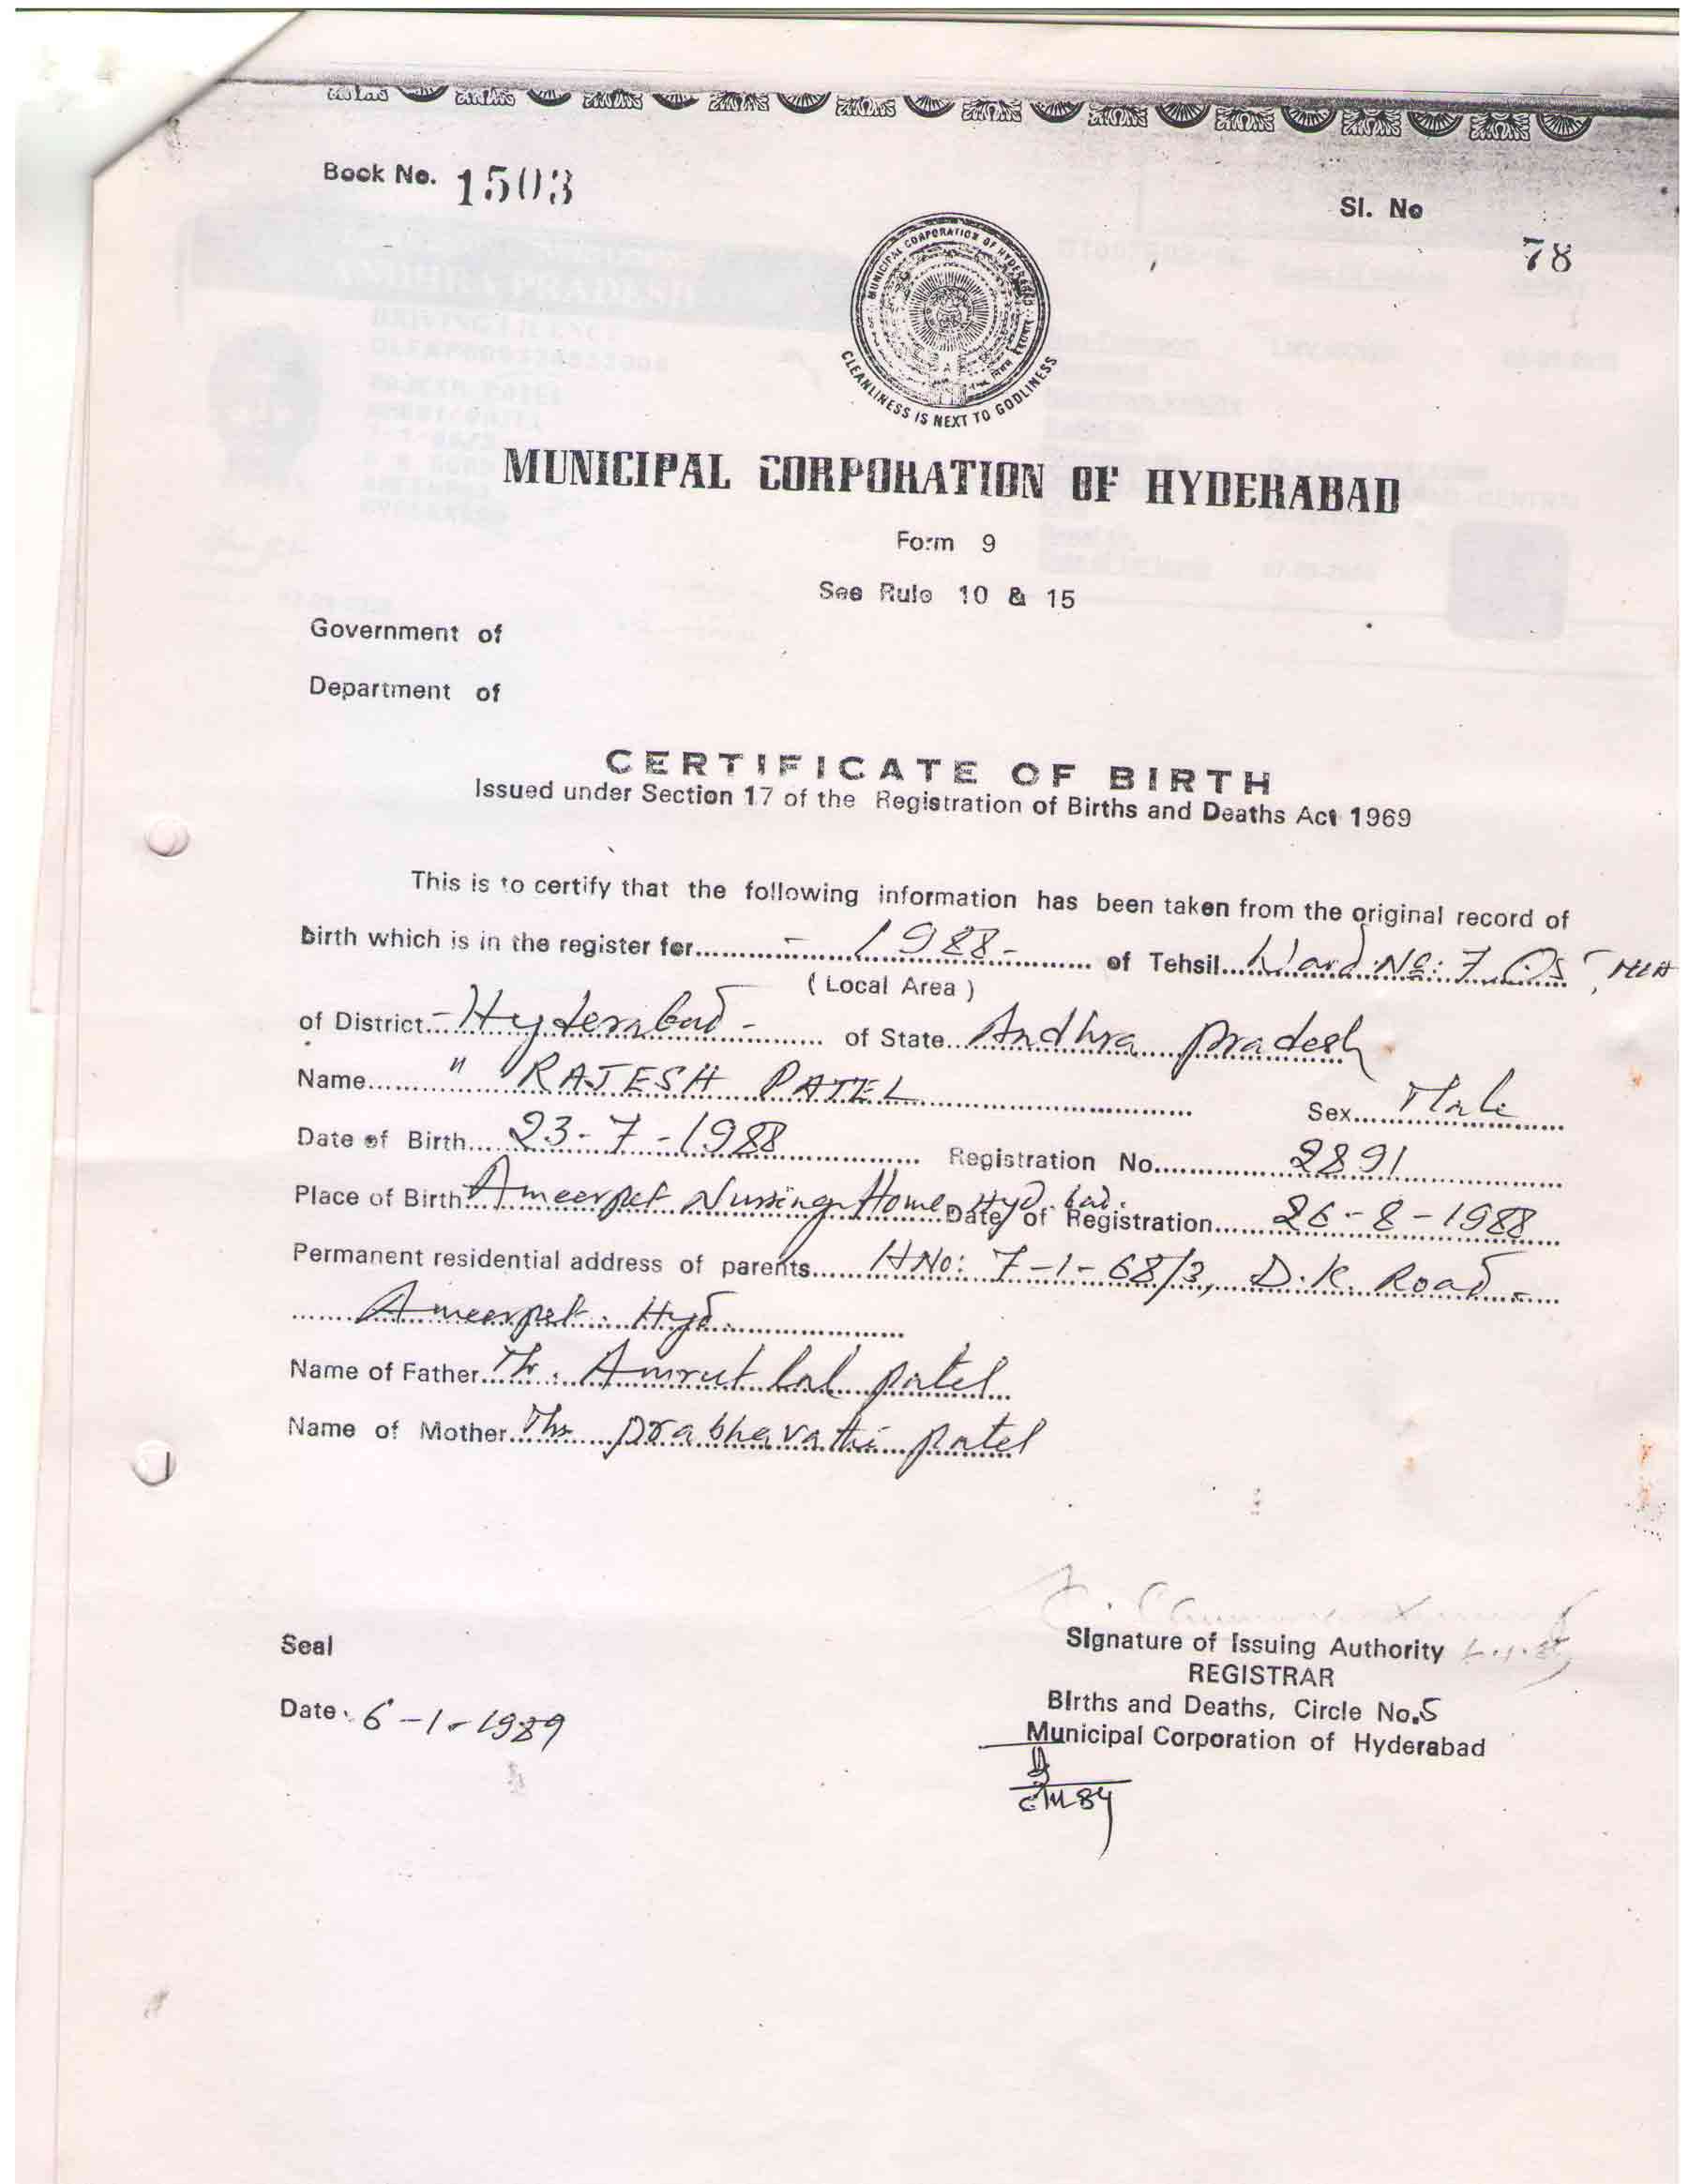 Book No. 1503
Sl. No
78
MUNICIPAL CORPORATION OF HYDERABAD
CLEANLINESS IS NEXT TO GODLINESS
MUNICIPAL CORPORATION OF HYDERABAD
Form 9
See Rule 10 & 15
Government of
Department of
CERTIFICATE OF BIRTH
Issued under Section 17 of the Registration of Births and Deaths Act 1969
This is to certify that the following information has been taken from the original record of
birth which is in the register for - 1988 - of Tehsil Ward No: 7
( Local Area )
of District - Hyderabad - of State Andhra pradesh
Name " RAJESH PATEL Sex Male
Date of Birth 23-7-1988 Registration No. 2891
Place of Birth Ameerpet Nursing Home, Hyd. bad. Date of Registration 26-8-1988
Permanent residential address of parents HNo: 7-1-68/3, D.K. Road -
Ameerpet. Hyd.
Name of Father Amrut lal patel
Name of Mother prabhavathi patel
Seal
Signature of Issuing Authority
REGISTRAR
Date. 6-1-1989
Births and Deaths, Circle No. 5
Municipal Corporation of Hyderabad